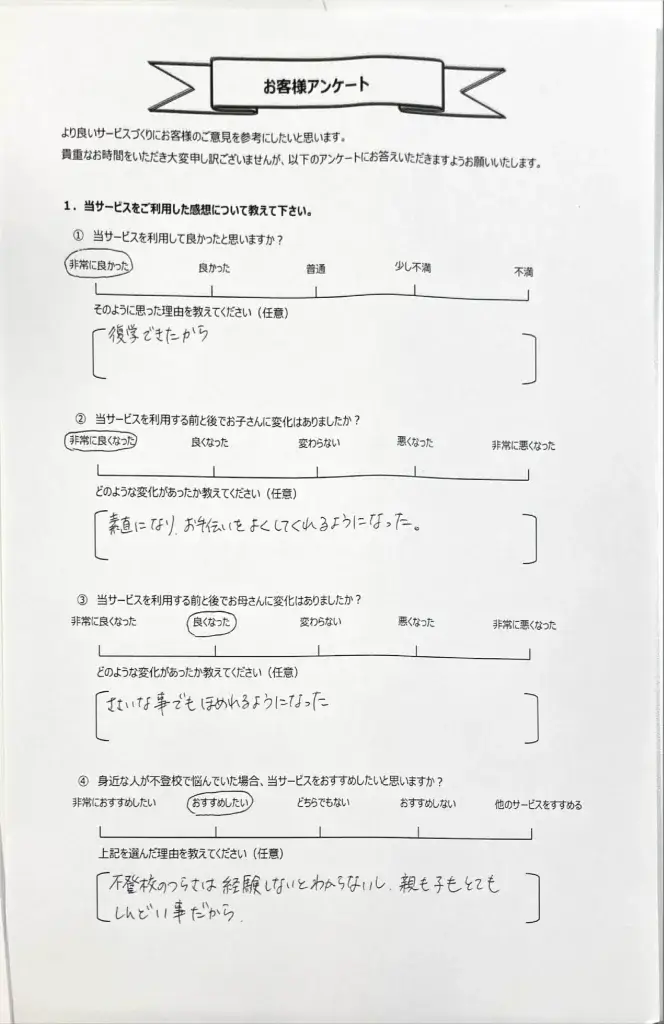 お客様アンケート
より良いサービスづくりにお客様のご意見を参考にしたいと思います。
貴重なお時間をいただき大変申し訳ございませんが、以下のアンケートにお答えいただきますようお願いいたします。
1．当サービスをご利用した感想について教えて下さい。
① 当サービスを利用して良かったと思いますか？
非常に良かった 良かった 普通 少し不満 不満
そのように思った理由を教えてください（任意）
復学できたから
② 当サービスを利用する前と後でお子さんに変化はありましたか？
非常に良くなった 良くなった 変わらない 悪くなった 非常に悪くなった
どのような変化があったか教えてください（任意）
素直になり、お手伝いをよくしてくれるようになった。
③ 当サービスを利用する前と後でお母さんに変化はありましたか？
非常に良くなった 良くなった 変わらない 悪くなった 非常に悪くなった
どのような変化があったか教えてください（任意）
ささいな事でもほめれるようになった
④ 身近な人が不登校で悩んでいた場合、当サービスをおすすめしたいと思いますか？
非常におすすめしたい おすすめしたい どちらでもない おすすめしない 他のサービスをすすめる
上記を選んだ理由を教えてください（任意）
不登校のつらさは経験しないとわからないし、親も子もとても
しんどい事だから、